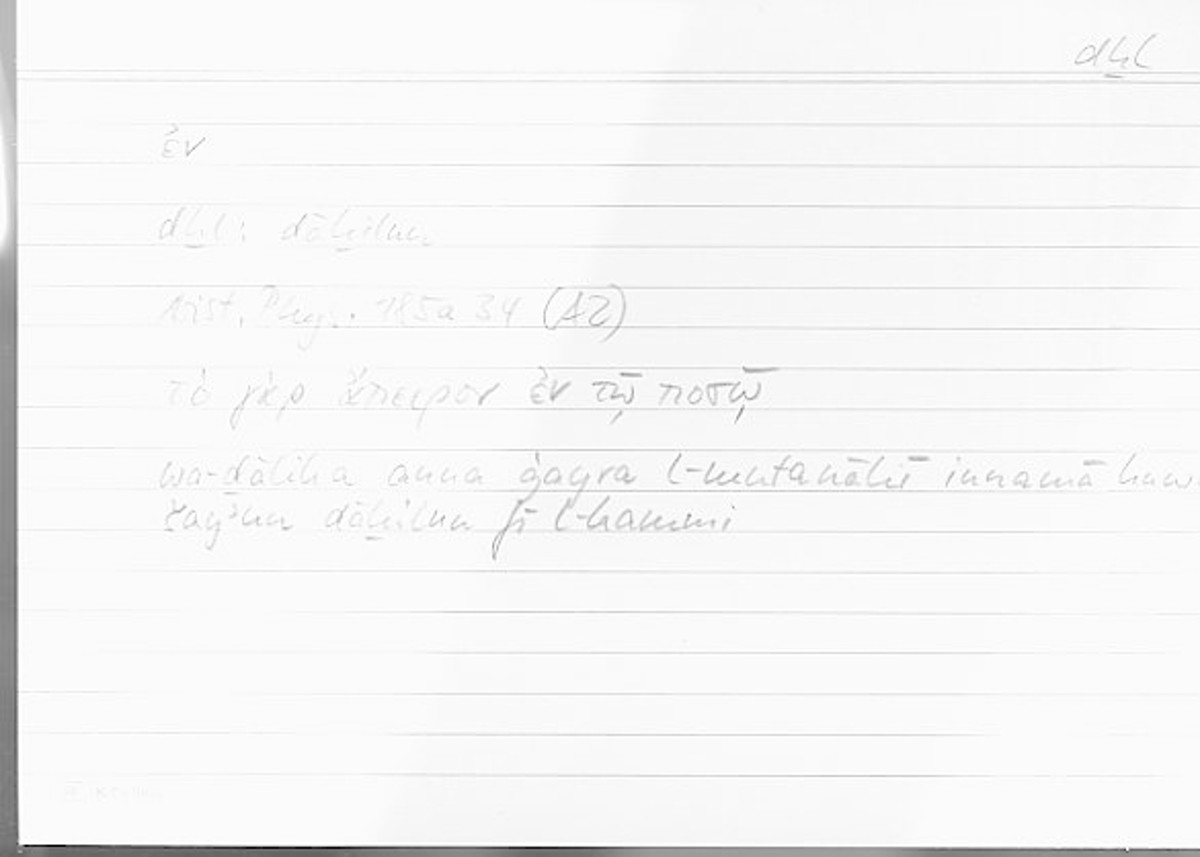 dḫl
ἐν
dḫl: dāḫilun
Arist. Phys. 185a 34 (A2)
τὸ γὰρ ἄπειρον ἐν τῷ ποσῷ
wa-ḏālika anna ġayra l-mutanāhī innamā huwa
šayʾun dāḫilun fī l-kammi